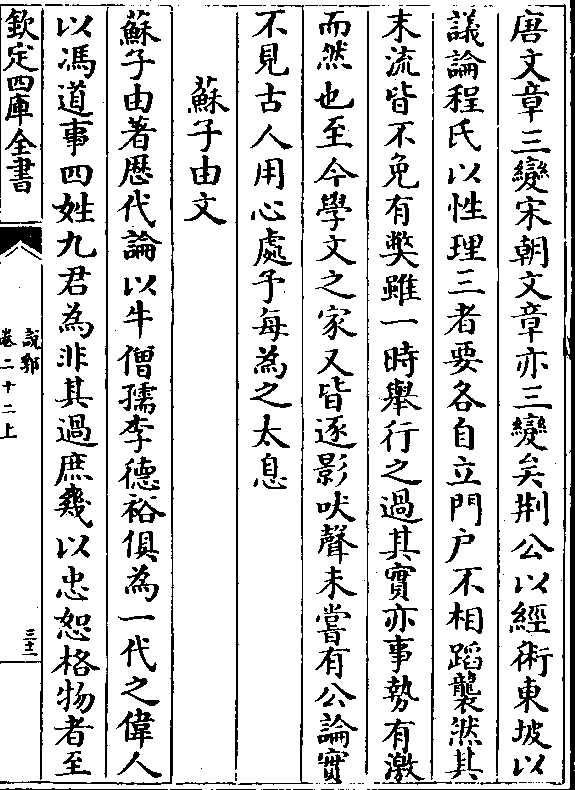 唐文章三變宋朝文章亦三變矣荆公以經術東坡以
議論程氏以性理三者要各自立門户不相蹈襲然其
末流皆不免有弊雖一時舉行之過其實亦事勢有激
而然也至今學文之家又皆逐影吠聲未嘗有公論實
不見古人用心處予每為之太息
蘇子由文
蘇子由著歴代論以牛僧孺李德裕俱為一代之偉人
以馮道事四姓九君為非其過庶幾以忠恕格物者至
欽定四庫全書
説郛
卷二十二上
三十二